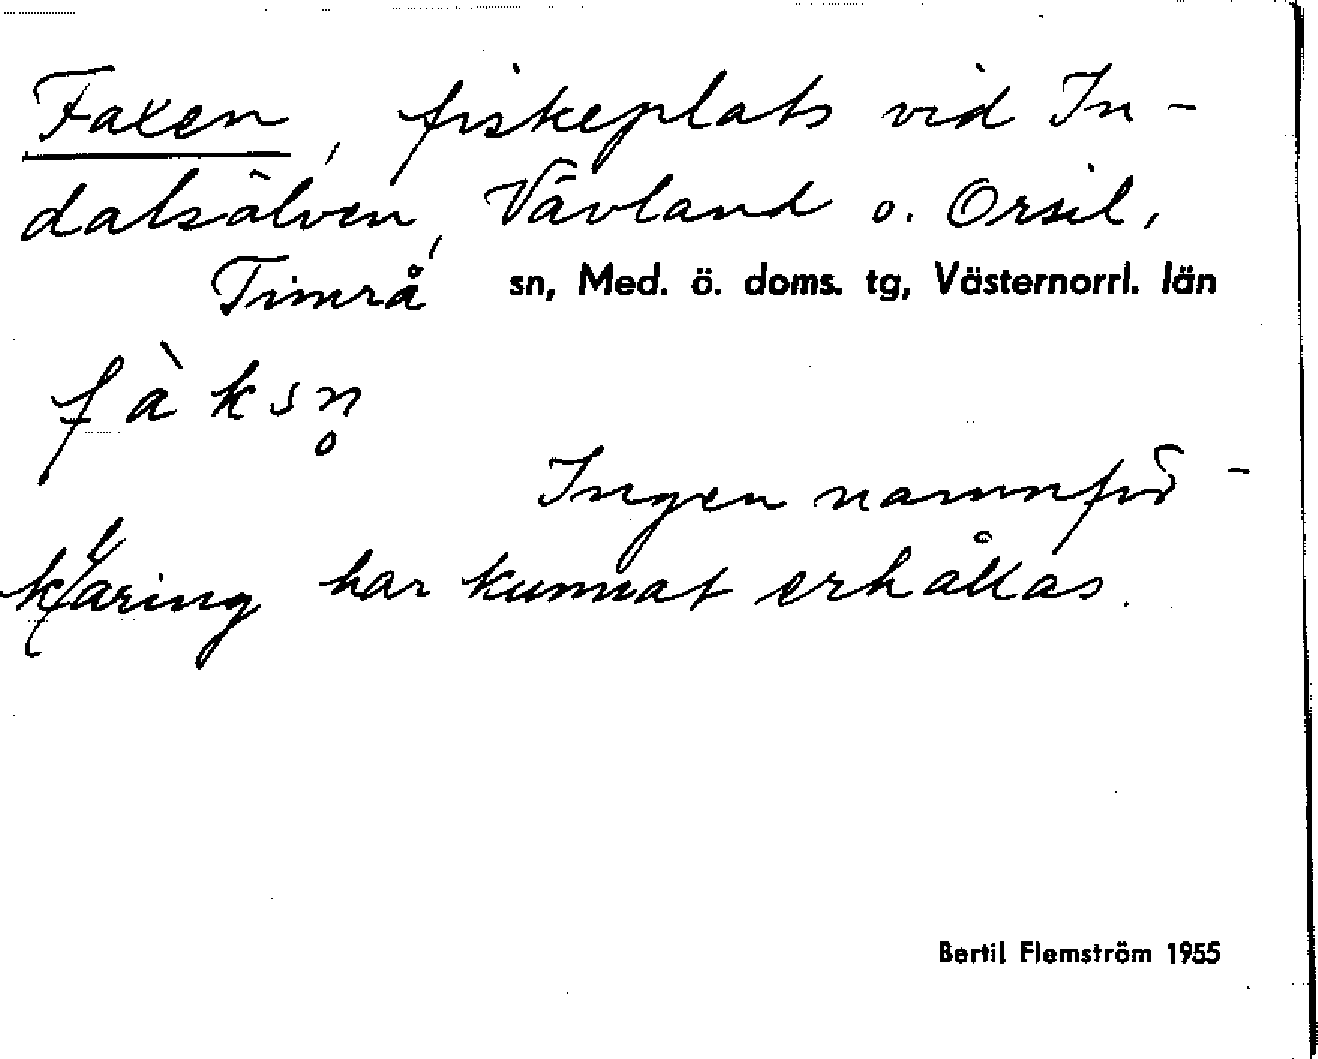 Faxen, fiskeplats vid In-
dalsälven, Vävland o. Orsil,
Timrå sn, Med. ö. doms. tg, Västernorrl. län
fàksn̥
Ingen namnför-
klaring har kunnat erhållas.
Bertil Flemström 1955